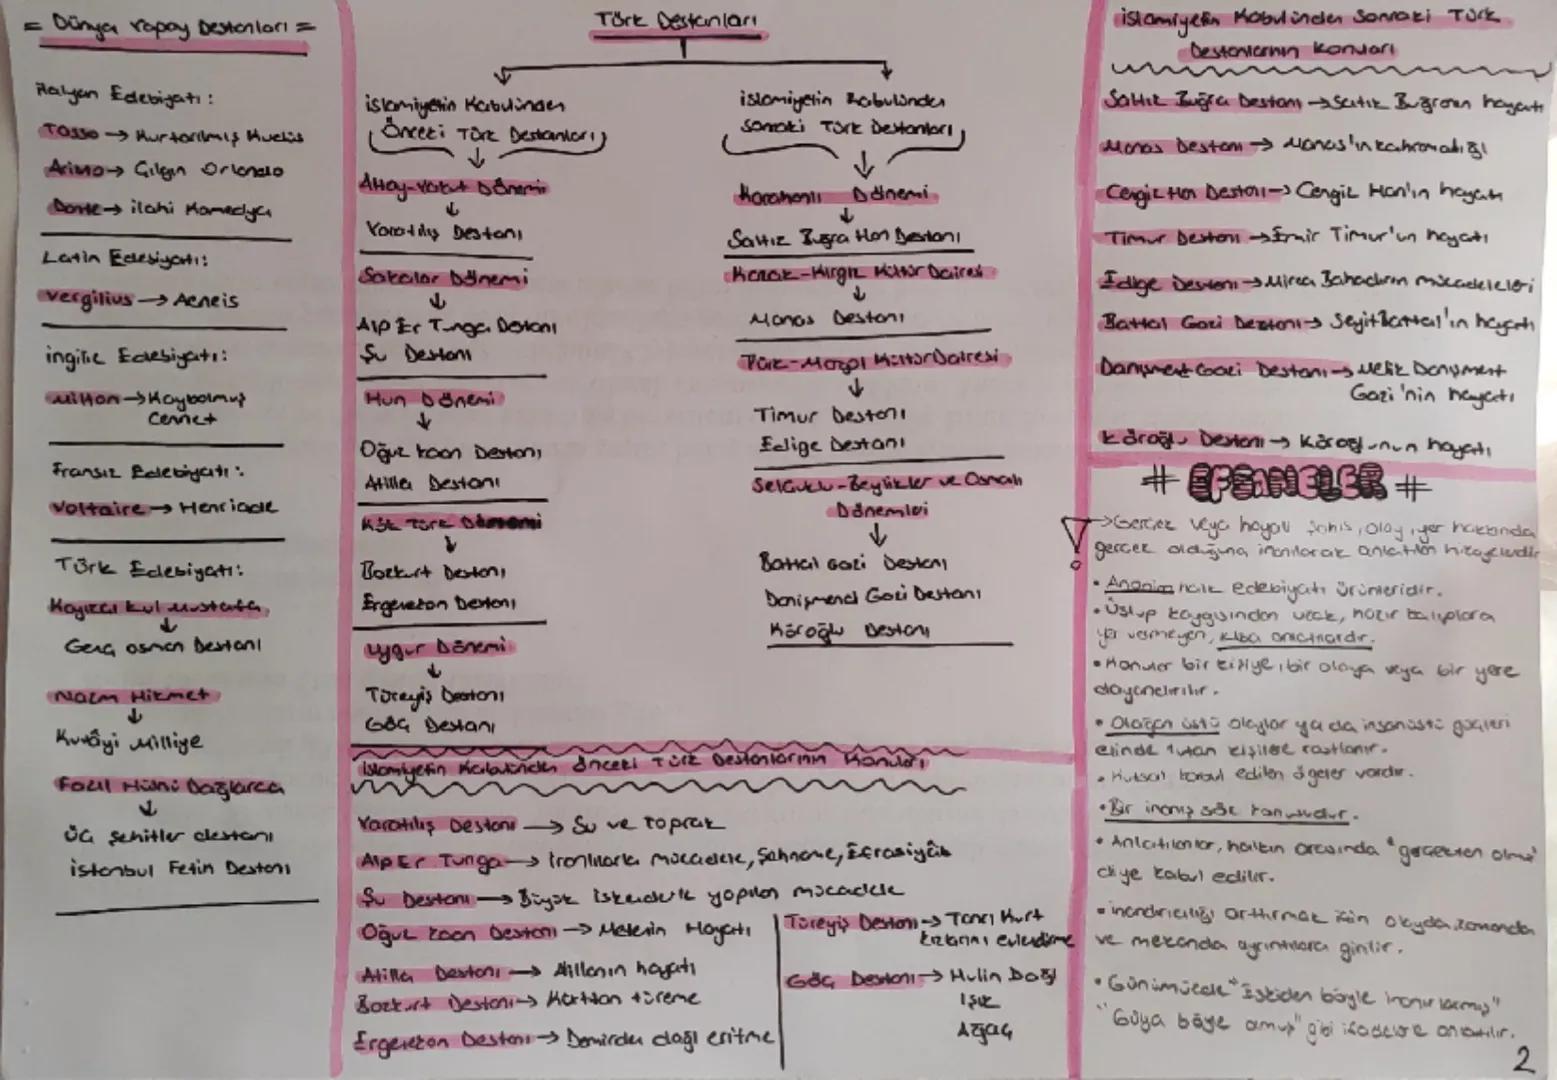 = Dünya Yapay Destanları =
İtalyan Edebiyatı:
Tasso → Kurtarılmış Kudüs
Aristo → Çılgın Orlando
Dante → ilahi Komedya
Latin Edebiyatı:
Vergilius → Aeneis
ingiliz Edebiyatı:
Milton → Kaybolmuş
Cennet
Fransız Edebiyatı:
Voltaire → Henriade
Türk Edebiyatı:
Kayıkçı Kul Mustafa
↓
Genç osman Destanı
Nazım Hikmet
↓
Kuvâyi Milliye
Fazıl Hüsnü Dağlarca
↓
Üç şehitler destanı
istanbul Fetih Destanı
Türk Destanları
islamiyetin Kabulünden
Önceki Türk Destanları
↓
Altay-Yakut Dönemi
↓
Yaratılış Destanı
Sakalar Dönemi
↓
Alp Er Tunga Destanı
Şu Destanı
Hun Dönemi
↓
Oğuz kaan Destanı
Atilla Destanı
Kök Türk Dönemi
↓
Bozkurt Destanı
Ergenekon Destanı
Uygur Dönemi
↓
Türeyiş Destanı
Göç Destanı
islamiyetin Kabulünden
Sonraki Türk Destanları
↓
Karahanlı Dönemi
↓
Saltız Buğra Han Destanı
Kazak-Kırgız Kültür Dairesi
↓
Manas Destanı
Türk-Moğol Kültür Dairesi
↓
Timur Destanı
Edige Destanı
Selçuklu-Beylikler ve Osmanlı
Dönemleri
↓
Battal Gazi Destanı
Danişmend Gazi Destanı
Köroğlu Destanı
islamiyetin Kabulünden önceki Türk Destanlarının Konuları
Yaratılış Destanı → Su ve toprak
Alp Er Tunga → İranlılarla mücadele, Şahname, Efrasiyâb
Şu Destanı → Büyük iskenderle yapılan mücadele
Oğuz kaan Destanı → Metenin Hayatı
Atilla Destanı → Atillanın hayatı
Bozkurt Destanı → Kurttan türeme
Ergenekon Destanı → Demirden dağı eritme
Türeyiş Destanı → Tanrı Kurt
kızlarını evlendirme
Göç Destanı → Hulin Dağı
Işık
Ağaç
islamiyetin Kabulünden Sonraki Türk
Destanlarının Konuları
Saltık Buğra Destanı → Satık Buğranın hayatı
Manas Destanı → Manas'ın kahramanlığı
Cengiz Han Destanı → Cengiz Han'ın hayatı
Timur Destanı → Emir Timur'un hayatı
Edige Destanı → Mirza Bahadırın mücadeleleri
Battal Gazi Destanı → Seyit Battal'ın hayatı
Danişment Gazi Destanı → Melik Danişment
Gazi'nin hayatı
Köroğlu Destanı → Köroğlunun hayatı
# EFSANELER #
! → Gerçek veya hayali şahıs, olay, yer hakkında
gerçek olduğuna inanılarak anlatılan hikayelerdir
• Anonim halk edebiyatı ürünleridir.
• Üslup kaygısından uzak, hazır kalıplara
yer vermeyen, kısa anlatılardır.
• Konular bir kişiye, bir olaya veya bir yere
dayandırılır.
• Olağan üstü olaylar ya da insanüstü güçleri
elinde tutan kişilere rastlanır.
• Kutsal kabul edilen ögeler vardır.
• Bir inanış söz konusudur.
• Anlatılanlar, halkın arasında "gerçekten olmuş"
diye kabul edilir.
• inandırıcılığı arttırmak için olayda, zamanda
ve mekanda ayrıntılara girilir.
• Günümüzde "Eskiden böyle inanırlarmış"
"Güya böyle olmuş" gibi ifadelerle anlatılır.
2